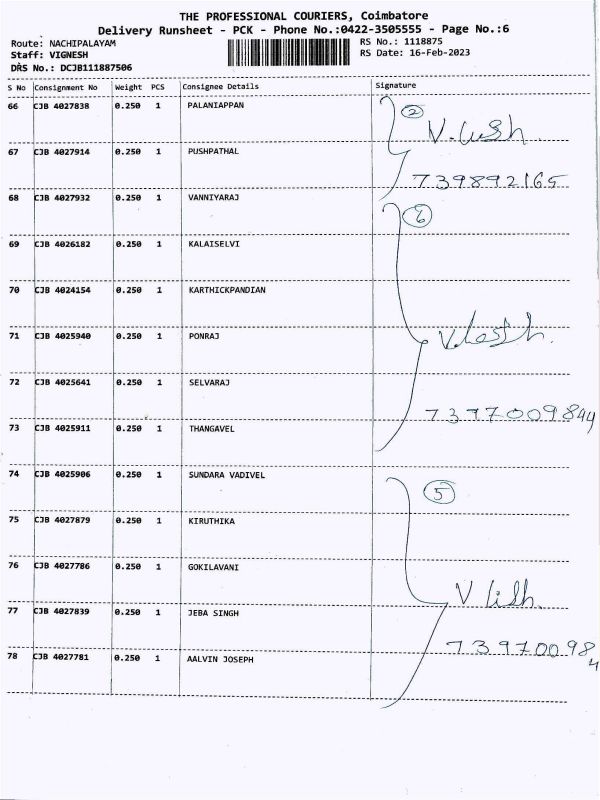 THE PROFESSIONAL COURIERS, Coimbatore
Delivery Runsheet - PCK - Phone No.:0422-3505555 - Page No.:6
Route: NACHIPALAYAM
RS No.: 1118875
Staff: VIGNESH
RS Date: 16-Feb-2023
DRS No.: DCJB111887506
S No Consignment No Weight PCS Consignee Details Signature
66 CJB 4027838 0.250 1 PALANIAPPAN 2
67 CJB 4027914 0.250 1 PUSHPATHAL
739892165
68 CJB 4027932 0.250 1 VANNIYARAJ 6
69 CJB 4026182 0.250 1 KALAISELVI
70 CJB 4024154 0.250 1 KARTHICKPANDIAN
71 CJB 4025940 0.250 1 PONRAJ
72 CJB 4025641 0.250 1 SELVARAJ
7397009844
73 CJB 4025911 0.250 1 THANGAVEL
74 CJB 4025906 0.250 1 SUNDARA VADIVEL 5
75 CJB 4027879 0.250 1 KIRUTHIKA
76 CJB 4027786 0.250 1 GOKILAVANI
77 CJB 4027839 0.250 1 JEBA SINGH
739700984
78 CJB 4027781 0.250 1 AALVIN JOSEPH